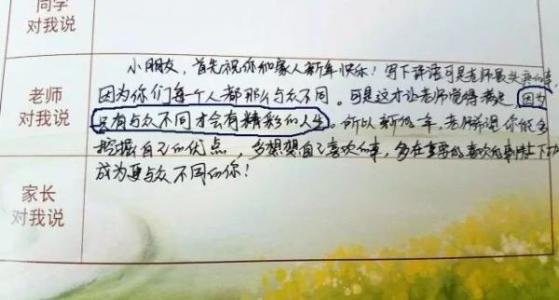 同学
对我说
老师
对我说
小朋友,首先祝你和家人新年快乐!写下评语可是老师最头疼的事
因为你们每个人都那么与众不同。可是这才让老师觉得满足,因为
只有与众不同才会有精彩的人生。所以新的一年,老师希望你能多
挖掘自己的优点,多想想自己喜欢的事,多在重要的喜欢的事情上下功
成为更与众不同的你!
家长
对我说